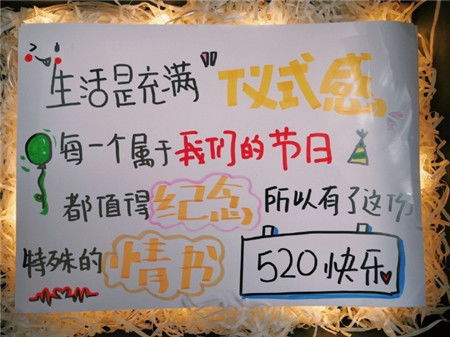 生活是充满"仪式感
每一个属于我们的节日
都值得纪念 所以有了这份
特殊的情书 520快乐